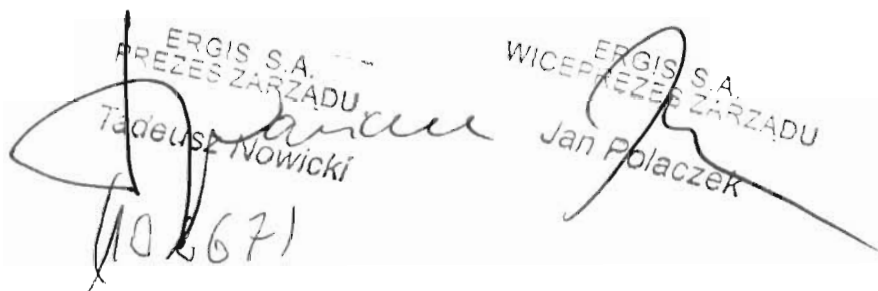 ERGIS S.A.
PREZES ZARZĄDU
Tadeusz Nowicki
ERGIS S.A.
WICEPREZES ZARZĄDU
Jan Polaczek